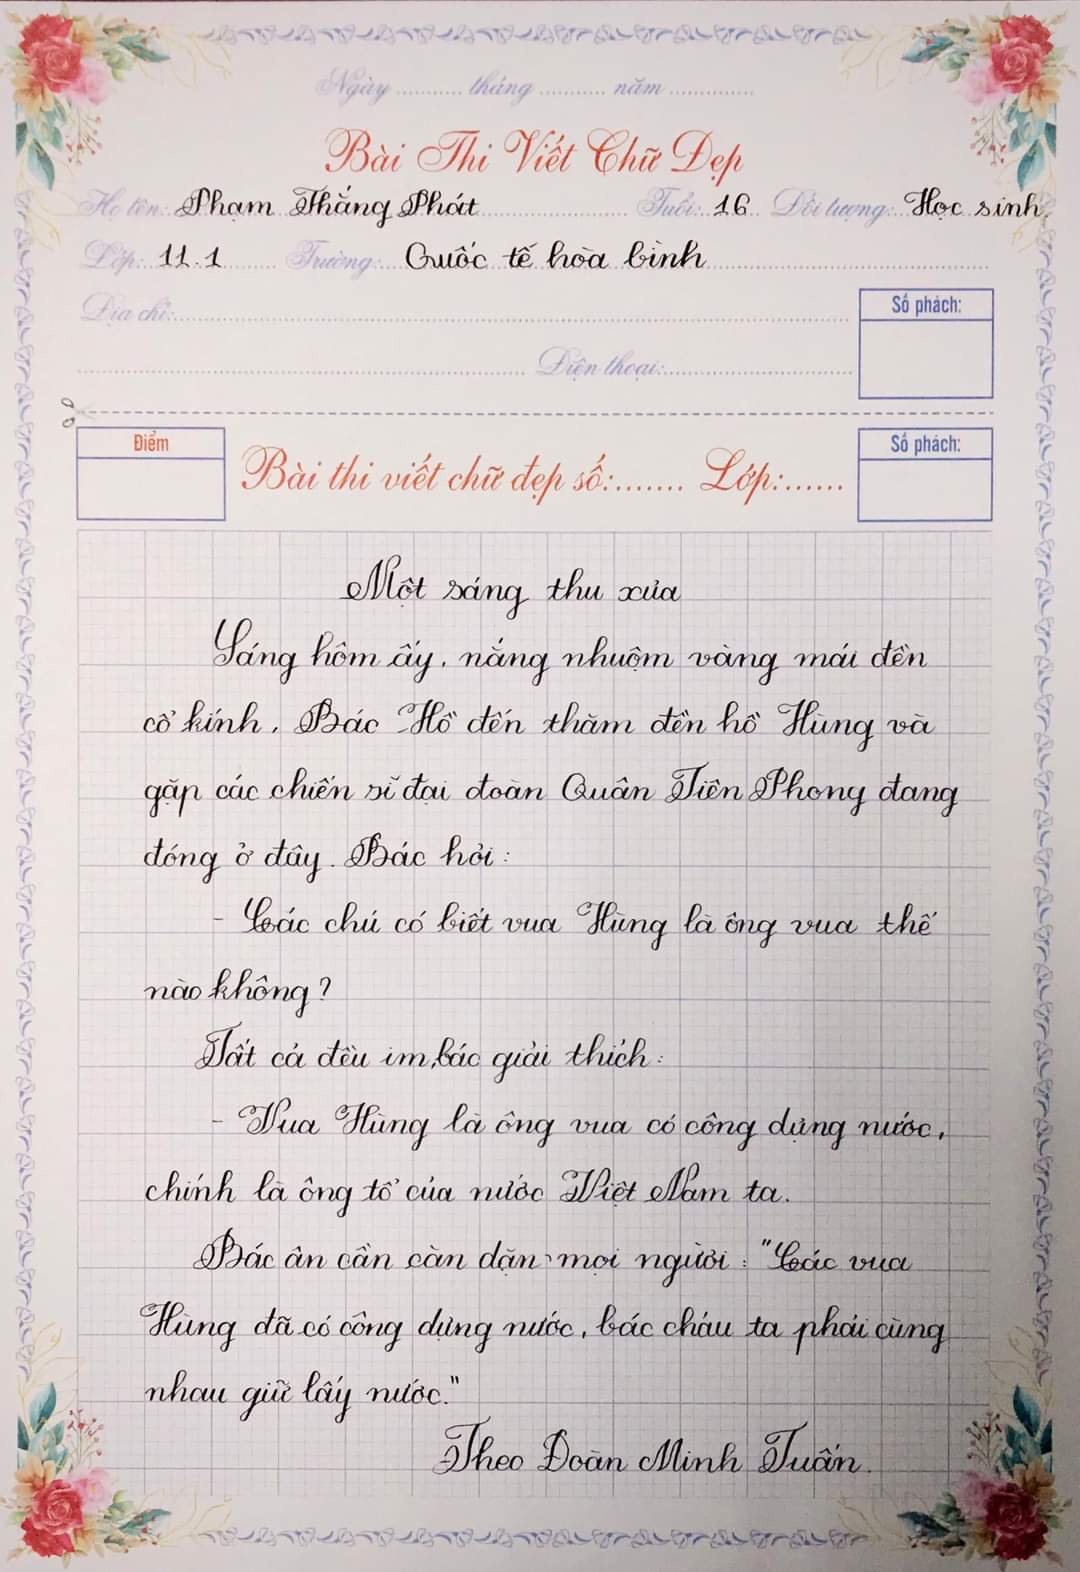 Ngày ........... tháng ........... năm ..............
Bài Thi Viết Chữ Đẹp
Họ tên: Phạm Thắng Phát Tuổi: 16 Đối tượng: Học sinh
Lớp: 11.1 Trường: Quốc tế hòa bình
Địa chỉ:
Số phách:
Điện thoại:
Điểm
Bài thi viết chữ đẹp số:....... Lớp:......
Số phách:
Một sáng thu xưa
Sáng hôm ấy, nắng nhuộm vàng mái đền
cổ kính. Bác Hồ đến thăm đền hồ Hùng và
gặp các chiến sĩ đại đoàn Quân Tiên Phong đang
đóng ở đây. Bác hỏi:
- Các chú có biết vua Hùng là ông vua thế
nào không?
Tất cả đều im, bác giải thích:
- Vua Hùng là ông vua có công dựng nước,
chính là ông tổ của nước Việt Nam ta.
Bác ân cần căn dặn mọi người: "Các vua
Hùng đã có công dựng nước, bác cháu ta phải cùng
nhau giữ lấy nước."
Theo Đoàn Minh Tuấn.